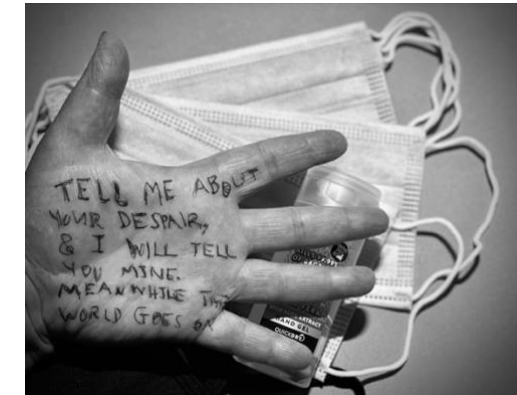 TELL ME ABOUT
YOUR DESPAIR,
& I WILL TELL
YOU MINE.
MEANWHILE THE
WORLD GOES ON
EXTRACT
HAND GEL